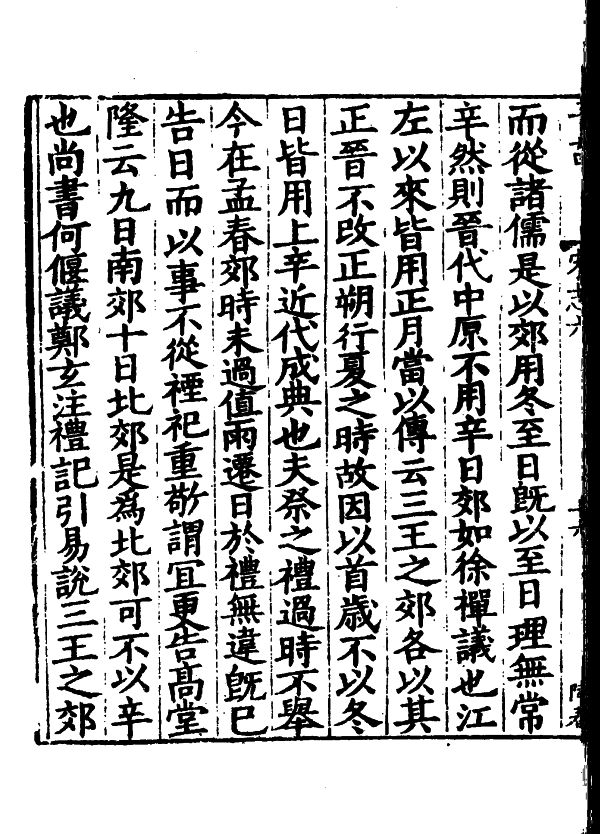 宋志六
而從諸儒是以郊用冬至日既以至日理無常
辛然則晉代中原不用辛日郊如徐禪議也江
左以來皆用正月當以傳云三王之郊各以其
正晉不改正朔行夏之時故因以首歲不以冬
日皆用上辛近代成典也夫祭之禮過時不舉
今在孟春郊時未過值雨遷日於禮無違既已
告日而以事不從禋祀重敬謂宜更告高堂
隆云九日南郊十日北郊是為北郊可不以辛
也尚書何偃議鄭玄注禮記引易說三王之郊